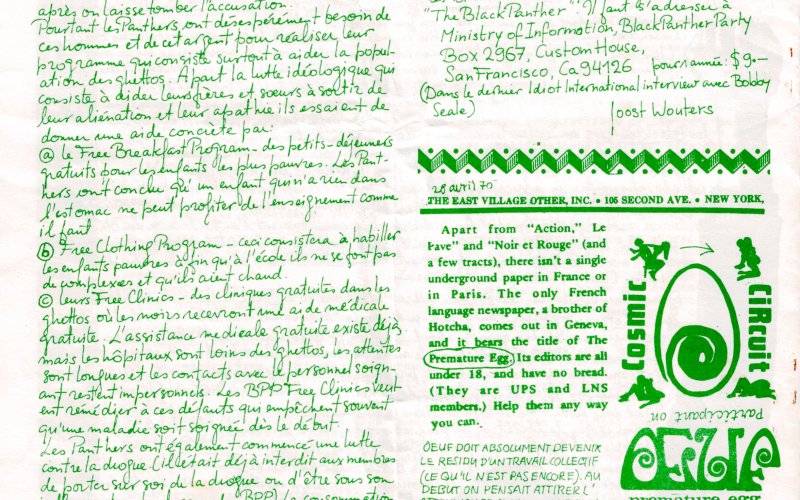 après on laisse tomber l'accusation.
Pourtant les Panthers ont désespérément besoin de
ces hommes et de cet argent pour réaliser leur
programme qui consiste surtout à aider la popul-
ation des ghettos. A part la lutte idéologique qui
consiste à aider leurs frères et sœurs à sortir de
leur aliénation et leur apathie ils essaient de
donner une aide concrète par:
ⓐ le Free Breakfast Program - des petits-déjeuners
gratuits pour les enfants les plus pauvres. Les Pant-
hers ont conclu qu'un enfant qui n'a rien dans
l'estomac ne peut profiter de l'enseignement comme
il faut
ⓑ Free Clothing Program - ceci consistera à habiller
les enfants pauvres afin qu'à l'école ils ne se font pas
de complexes et qu'ils aient chaud.
ⓒ leurs Free Clinics - des cliniques gratuites dans les
ghettos où les noirs recevront une aide médicale
gratuite. L'assistance medicale gratuite existe déjà
mais les hôpitaux sont loins des ghettos, les attentes
sont longues et les contacts avec le personnel soign-
ant restent impersonnels. Les BPP Free Clinics veul-
ent remédier à ces défauts qui empêchent souvent
qu'une maladie soit soignée dès le début.
Les Panthers ont également commencé une lutte
contre la drogue (il était déjà interdit aux membres
de porter sur soi de la drogue ou d'être sous son
BPP) la consommation
"The Black Panther" Il faut s'adresser à
Ministry of Information, Black Panther Party
Box 2967, Custom House,
San Francisco, Ca 94126 pour 1 année: $9.-
(Dans le dernier Idiot International interview avec Bobby
Seale)
Joost Wouters
28 avril 70
THE EAST VILLAGE OTHER, INC. • 105 SECOND AVE. • NEW YORK,
Apart from "Action," Le
Pave" and "Noir et Rouge" (and
a few tracts), there isn't a single
underground paper in France or
in Paris. The only French
language newspaper, a brother of
Hotcha, comes out in Geneva,
and it bears the title of The
Premature Egg. Its editors are all
under 18, and have no bread.
(They are UPS and LNS
members.) Help them any way
you can.
Cosmic
CiRcuit
Participant on
OEUF
premature egg
OEUF DOIT ABSOLUMENT DEVENIR
LE RESIDU D'UN TRAVAIL COLLECTIF
(CE QU'IL N'EST PAS ENCORE). AU
DEBUT ON PENSAIT ATTIRER L'